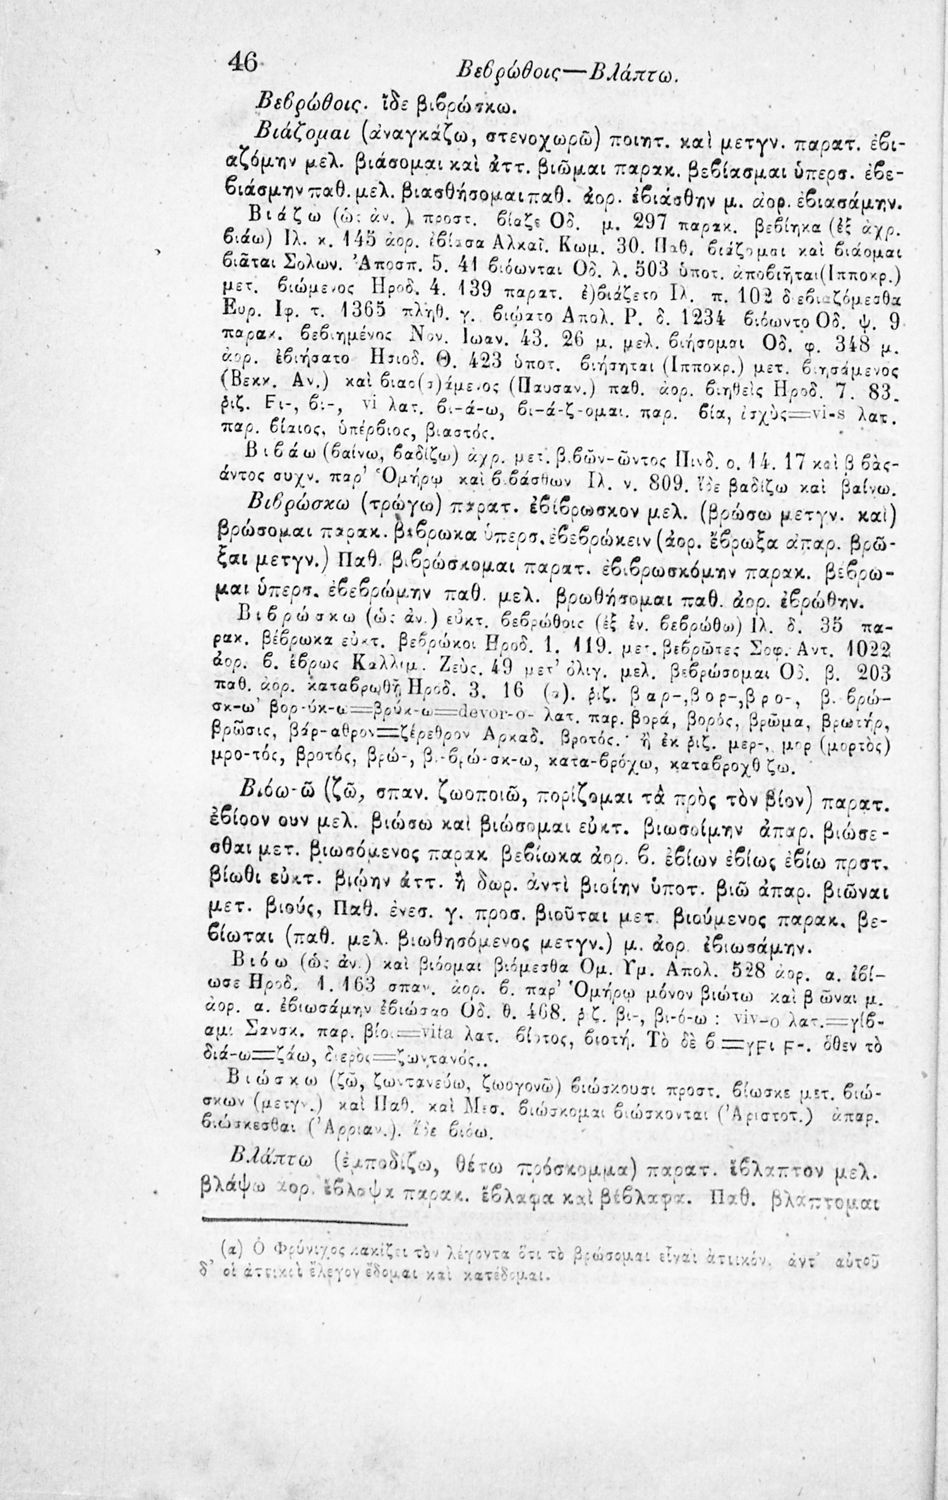 46
Βεβρώθοις—Βλάπτω.
Βεβρώθοις. ἴδε βιβρώσκω.
Βιάζομαι (ἀναγκάζω, στενοχωρῶ) ποιητ. καὶ μετγν. παρατ. ἐβι-
αζόμην μελ. βιάσομαι καὶ ἀττ. βιῶμαι παρακ. βεβίασμαι ὑπερσ. ἐβε-
βιάσμην παθ. μελ. βιασθήσομαι παθ. ἀορ. ἐβιάσθην μ. ἀορ. ἐβιασάμην.
Βιάζω (ὡς ἀν.) προστ. βίαζε Οδ. μ. 297 παρακ. βεβίηκα (ἐξ ἀχρ.
βιάω) Ιλ. κ. 145 ἀορ. ἐβίασα Αλκαῖ. Κωμ. 30. Παθ. βιάζομαι καὶ βιάομαι
βιᾶται Σολων. Ἀποσπ. 5. 41 βιόωνται Οδ. λ. 503 ὑποτ. ἀποβιῆται (Ιπποκρ.)
μετ. βιώμενος Ηροδ. 4. 139 παρατ. ἐ)βιάζετο Ιλ. π. 102 δ'εβιαζόμεσθα
Ευρ. Ιφ. τ. 1365 πληθ. γ. βιῴατο Απολ. Ρ. δ. 1234 βιόωντο Οδ. ψ. 9
παρακ. βεβιημένος Νον. Ιωαν. 43. 26 μ. μελ. βιήσομαι Οδ. φ. 348 μ.
ἀορ. ἐβιήσατο Ησιοδ. Θ. 423 ὑποτ. βιήσηται (Ιπποκρ.) μετ. βιησάμενος
(Βεκκ. Αν.) καὶ βιασ(σ)άμενος (Παυσαν.) παθ. ἀορ. βιηθεὶς Ηροδ. 7. 83.
ῥιζ. Fι-, βι-, vi λατ. βι-ά-ω, βι-ά-ζ-ομαι. παρ. βία, ἰσχὺς=vi-s λατ.
παρ. βίαιος, ὑπέρβιος, βιαστός.
Βιβάω (βαίνω, βαδίζω) ἀχρ. μετ. βιβῶν-ῶντος Πινδ. ο. 14. 17 καὶ βιβὰς-
άντος συχν. παρ' Ὁμήρῳ καὶ βιβάσθων Ιλ. ν. 809. Ἴδε βαδίζω καὶ βαίνω.
Βιβρώσκω (τρώγω) παρατ. ἐβίβρωσκον μελ. (βρώσω μετγν. καὶ)
βρώσομαι παρακ. βέβρωκα ὑπερσ. ἐβεβρώκειν (ἀορ. ἔβρωξα ἀπαρ. βρῶ-
ξαι μετγν.) Παθ. βιβρώσκομαι παρατ. ἐβιβρωσκόμην παρακ. βέβρω-
μαι ὑπερσ. ἐβεβρώμην παθ. μελ. βρωθήσομαι παθ. ἀορ. ἐβρώθην.
Βιβρώσκω (ὡς ἀν.) εὐκτ. βεβρώθοις (ἐξ ἐν. βεβρώθω) Ιλ. δ. 35 πα-
ρακ. βέβρωκα εὐκτ. βεβρώκοι Ηροδ. 1. 119. μετ. βεβρῶτες Σοφ. Αντ. 1022
ἀορ. β. ἔβρως Καλλιμ. Ζεὺς. 49 μετ' ὀλιγ. μελ. βεβρώσομαι Οδ. β. 203
παθ. ἀορ. καταβρωθῇ Ηροδ. 3. 16 (α). ῥιζ. βαρ-, βορ-, βρο-, βι-βρώ-
σκ-ω βορ-ύκ-ω=βρύκ-ω=devor-o- λατ. παρ. βορά, βορός, βρῶμα, βρωτήρ,
βρῶσις, βάρ-αθρον=ζέρεθρον Αρκαδ. βροτός. ἢ ἐκ ριζ. μερ-, μορ (μορτὸς)
μρο-τός, βροτός, βρώ-, βι-βρώ-σκ-ω, κατα-βρόχω, καταβροχθίζω.
Βιόω-ῶ (ζῶ, σπαν. ζωοποιῶ, πορίζομαι τὰ πρὸς τὸν βίον) παρατ.
ἐβίοον ουν μελ. βιώσω καὶ βιώσομαι εὐκτ. βιωσοίμην ἀπαρ. βιώσε-
σθαι μετ. βιωσόμενος παρακ βεβίωκα ἀορ. β. ἐβίων ἐβίως ἐβίω πρστ.
βίωθι εὐκτ. βιῴην ἀττ. ἢ δωρ. ἀντὶ βιοίην ὑποτ. βιῶ ἀπαρ. βιῶναι
μετ. βιούς, Παθ. ἐνεσ. γ. προσ. βιοῦται μετ. βιούμενος παρακ. βε-
βίωται (παθ. μελ. βιωθησόμενος μετγν.) μ. ἀορ. ἐβιωσάμην.
Βιόω (ὡς ἀν.) καὶ βιόομαι βιόμεσθα Ομ. Υμ. Απολ. 528 ἀορ. α. ἐβί-
ωσε Ηροδ. 1. 163 σπαν. ἀορ. β. παρ' Ὁμήρῳ μόνον βιώτω καὶ βιῶναι μ.
ἀορ. α. ἐβιωσάμην ἐβιώσαο Οδ. θ. 468. ῥιζ. βι-, βι-ό-ω : viv-o λατ.=γίβ-
αμι Σανσκ. παρ. βίος=vita λατ. βίοτος, βιοτή. Τὸ δὲ β=γFι F-. ὅθεν τὸ
διά-ω=ζάω, διερὸς=ζωντανός..
Βιώσκω (ζῶ, ζωντανεύω, ζωογονῶ) βιώσκουσι προστ. βίωσκε μετ. βιώ-
σκων (μετγν.) καὶ Παθ. καὶ Μεσ. βιώσκομαι βιώσκονται (Ἀριστοτ.) ἀπαρ.
βιώσκεσθαι (Ἀρριαν.). Ἴδε βιόω.
Βλάπτω (ἐμποδίζω, θέτω πρόσκομμα) παρατ. ἔβλαπτον μελ.
βλάψω ἀορ. ἔβλαψα παρακ. ἔβλαφα καὶ βέβλαφα. Παθ. βλάπτομαι
(α) Ὁ Φρύνιχος κακίζει τὸν λέγοντα ὅτι τὸ βρώσομαι εἶναι ἀττικόν, ἀντ' αὐτοῦ
δ' οἱ ἀττικοὶ ἔλεγον ἔδομαι καὶ κατέδομαι.